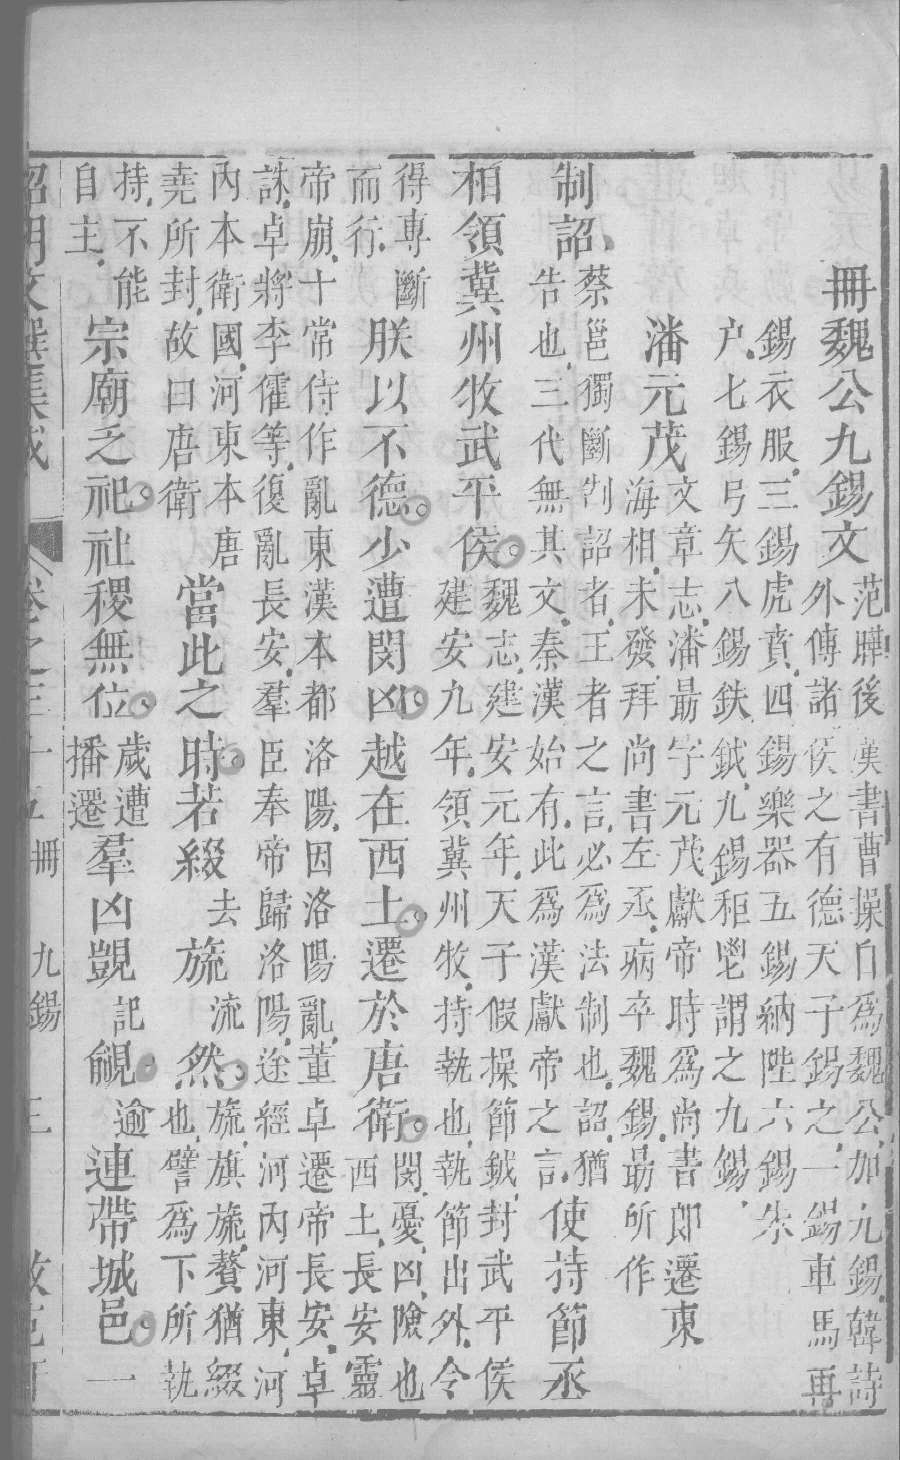 冊魏公九錫文
范曄後漢書曹操自為魏公加九錫韓詩
外傳諸侯之有德天子錫之一錫車馬再
錫衣服三錫虎賁四錫樂器五錫納陛六錫朱
户七錫弓矢八錫鈇鉞九錫秬鬯謂之九錫
潘元茂
文章志潘勗字元茂獻帝時為尚書郎遷東
海相未發拜尚書左丞病卒魏錫勗所作
制詔
蔡邕獨斷制詔者王者之言必為法制也詔猶
告也三代無其文秦漢始有此為漢獻帝之言
使持節丞
相領冀州牧武平侯
魏志建安元年天子假操節鉞封武平侯
建安九年領冀州牧持執也執節出外令
得專斷
而行
朕以不德少遭閔凶越在西土遷於唐衛
閔憂凶險也
西土長安靈
帝崩十常侍作亂東漢本都洛陽因洛陽亂董卓遷帝長安卓
誅卓將李傕等復亂長安羣臣奉帝歸洛陽途經河內河東河
內本衛國河東本唐
堯所封故曰唐衛
當此之時若綴去旒流然
旒旗旒贅猶綴
也譬為下所執
持不能
自主
宗廟乏祀社稷無位
歲遭
播遷
羣凶覬記覦逾連帶城邑一
昭明文選集成
卷之三十五
冊
九錫
三